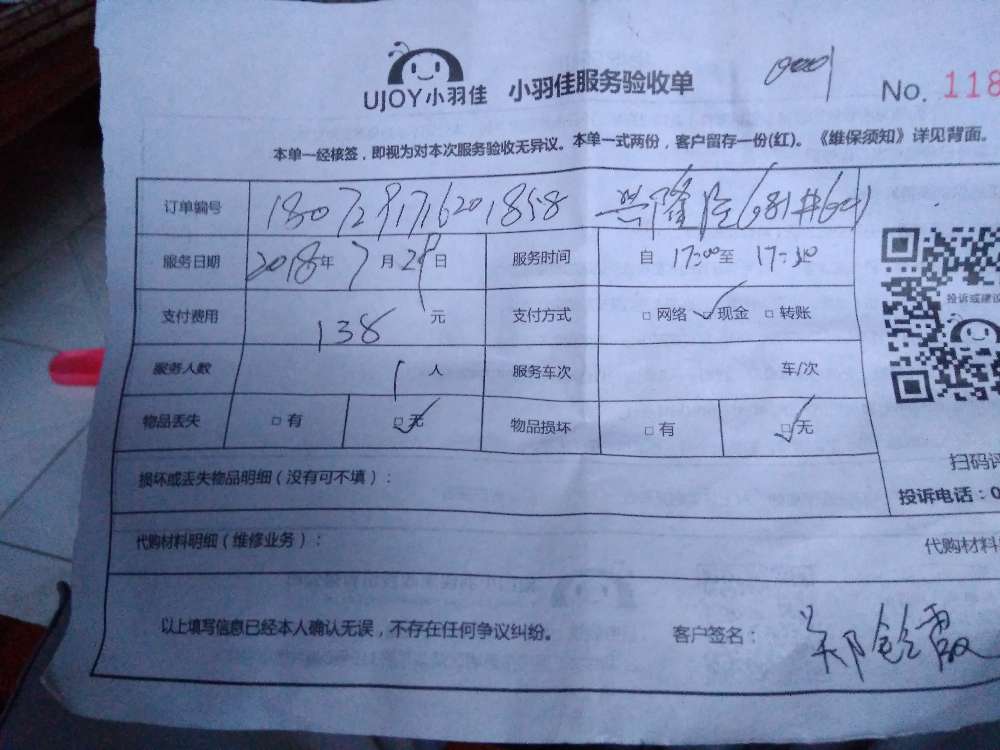 UJOY小羽佳 小羽佳服务验收单 No. 118
本单一经核签，即视为对本次服务验收无异议。本单一式两份，客户留存一份(红)。《维保须知》详见背面。
订单编号 1807291716201858 兴隆
服务日期 2018年7月29日 服务时间 自17:00至17:30
支付费用 138元 支付方式 □网络 ☑现金 □转账
服务人数 1人 服务车次 车/次
物品丢失 □有 ☑无 物品损坏 □有 ☑无
投诉或建议
损坏或丢失物品明细（没有可不填）：
扫码评
投诉电话：0
代购材料明细（维修业务）： 代购材料
以上填写信息已经本人确认无误，不存在任何争议纠纷。 客户签名：郑